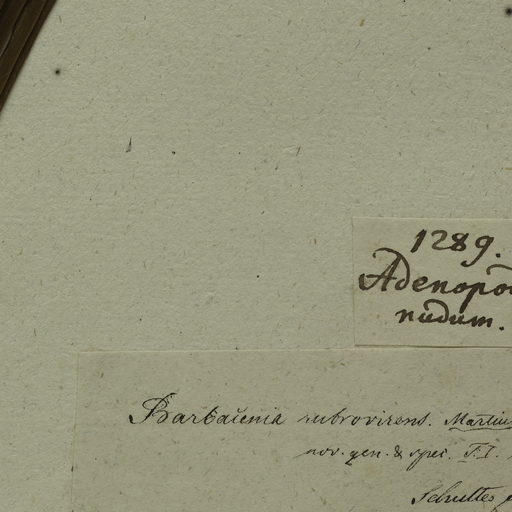 1289.
Adenopo
nudum.
Barbacenia rubrovirens. Martius
nov. gen. & spec. T. I.
Schultes f